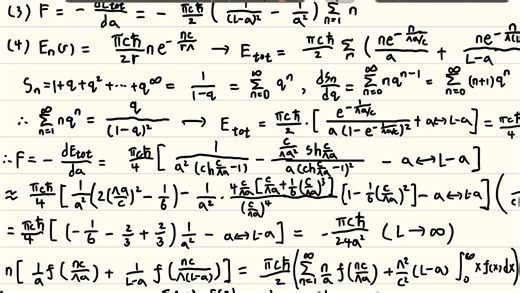 (3) F = - dE_tot/da = - πcħ/2 (1/(L-a)² - 1/a²) Σ_{n=1} n
(4) E_n(r) = πcħ/2r n e^{-nc/rΛ} → E_tot = πcħ/2 Σ_n ( n e^{-n/(Λa/c)}/a + n e^{-n/Λ(L
S_n = 1+q+q²+⋯+q^∞ = 1/(1-q) = Σ_{n=0}^∞ q^n , dS_n/dq = Σ_{n=0}^∞ n q^{n-1} = Σ_{n=0}^∞ (n+1)q^n
∴ Σ_{n=1}^∞ n q^n = q/(1-q)² → E_tot = πcħ/2 · [ e^{-1/(Λa/c)} / a(1-e^{-1/(Λa/c)})² + a↔L-a ] = πcħ/4
∴ F = - dE_tot/da = πcħ/4 [ 1/(a²(ch c/Λa -1)) - (c/Λa² sh c/Λa)/(a(ch c/Λa -1)²) - a↔L-a ]
≈ πcħ/4 [ 1/a² (2(Λa/c)² - 1/6) - 1/a² · 4 c/Λa [c/Λa + 1/6 (c/Λa)³]/(c/Λa)⁴ [1 - 1/6 (c/Λa)²] - a↔L-a ]
= πcħ/4 [ (- 1/6 - 2/3 + 2/3) 1/a² - a↔L-a ] = - πcħ/24a² (L→∞)
n [ 1/a f(nc/Λa) + 1/(L-a) f(nc/Λ(L-a)) ] = πcħ/2 ( Σ_{n=1}^∞ n/a f(nc/Λa) + Λ²/c² (L-a) ∫_0^∞ x f(x)dx )